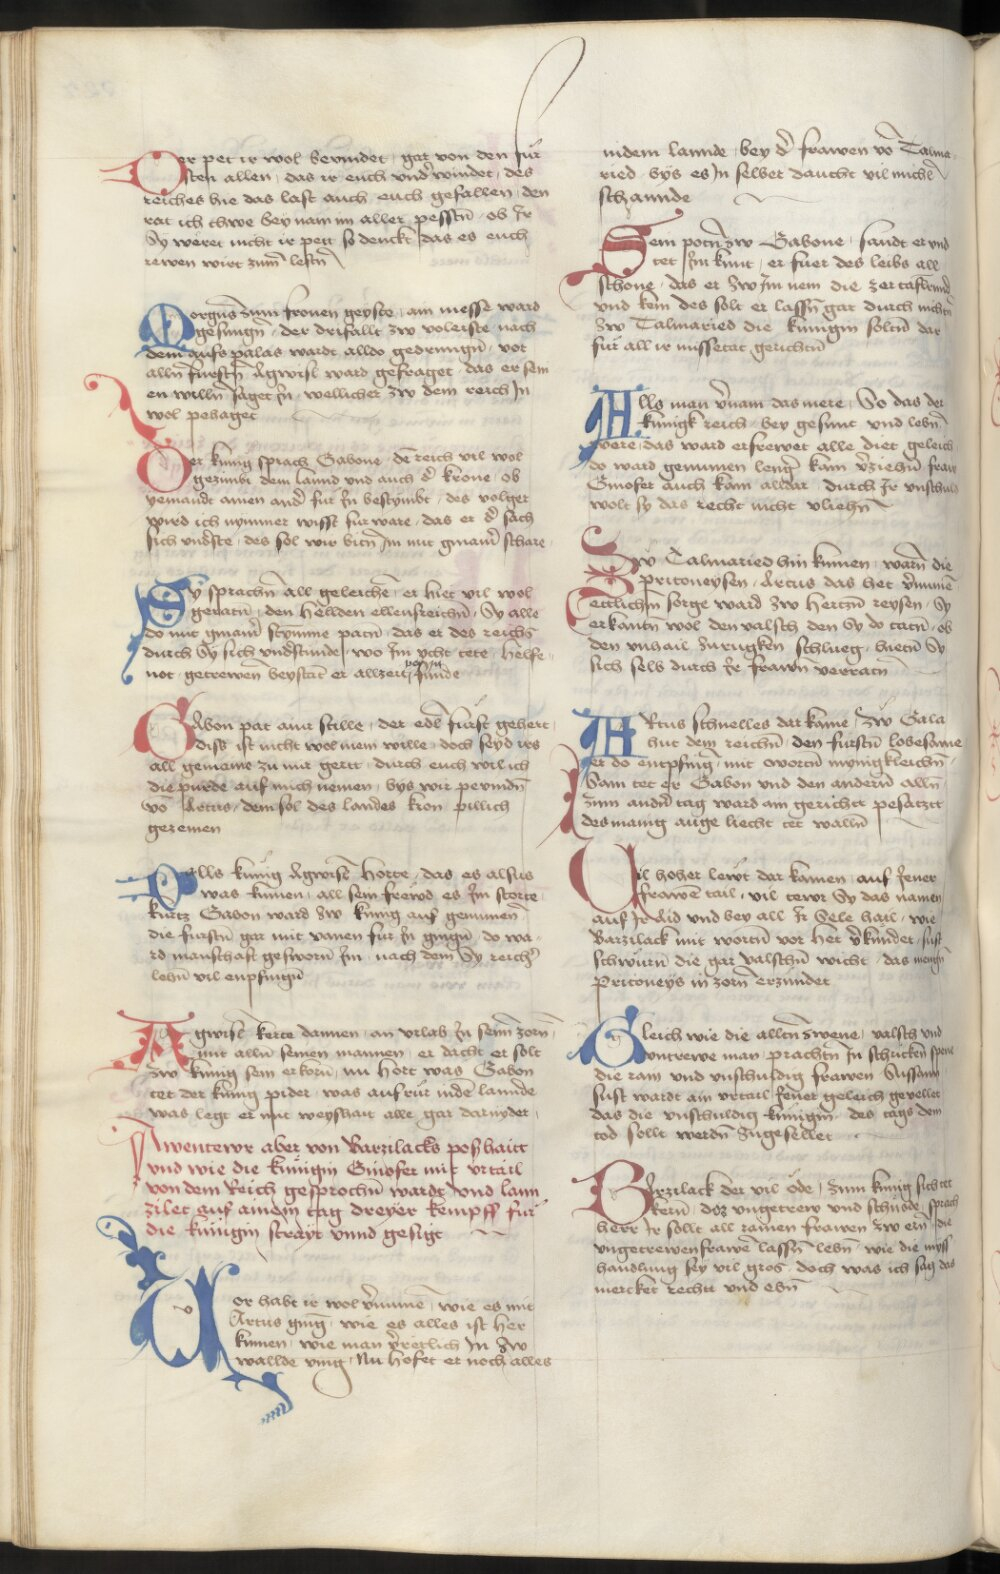 Der pet ir wol bevindet, gar von den für
sten allen, das ir euch vnd windet, des
reiches hie das last auch euch gefallen, den
rat ich thwe bey nam im aller pesstn, ob Ir
Sy weret nicht ir pett so denckt das es euch
rewen wirt zum lestn
Morgns zum fronen geyste, ain messe ward
gesungn, der drifallt zw voleiste nach
dem aufs palas wardt alldo gedrungn, vor
alln furstn Agwisl ward gefraget, das er sein
en willn saget In, wellicher zw dem reich In
wol pehaget
Der kunig sprach Gabone, de reich vil wol
gezimbt dem lannd vnd auch d' krone, ob
yemandt amen and' fur In bestymbt, des volget
wurd ich nymmer wisst fur ware, das er d' sach
sich vndste, des sol wir bitn Im mit gmainr schare
Sy sprachn all geleiche, er hiet vil wol
geratn, den Hellden ellenfreichn, Sy alle
do mit gmainr stymme patn, das er des reichs
durch Sy sich vnderstunde, wo Im ycht tete Helfe
not, getrewen beystat er allzeit pey In funde
Gabon pat aur stille, der edl furst gehert
diss ist nicht wol mein wille, doch seyd irs
all gemaine zu mir gert, durch euch wil ich
die purde auf mich nemen, bys wir pevindn
vo Artus, dem sol des landes kron pillich
gezemen
Alls kunig Agwisl Horte, das es alsus
was kumen, all sein frewd es Im storte
kurtz Gabon ward zw kunig auf genummen
die furstn gar mit vanen fur In gingn, do wa
rd manschaft gesworn Im, nach dem Sy reich'
lehn vil enpfingn
Agwisl kerte dannen, an vrlab In seinem zorn
mit alln seinen mannen, er dacht er solt
zw kunig sein erkorn, nu Hort was Gabon
tet der kunig pider, was aufrur inden lannde
was legt er mit weyshait alle gar darnyder
Awentewr aber von Barzilacks poshaitt
vnd wie die kunigin Ginofer mit vrtail
von dem Reich gesprochn wardt vnd lann
zilet auf ainem tag dreyer kempff fur
die kunigin strayt vnnd gesigt
Vor habt ir wol v'nummen, wie es mit
Artus ging, wie es alles ist Her
kumen, wie man v'retlich In zw
wallde ving, Nu Hofet er noch alles
indem lannde, bey d' frawen vo Talma
ried, bys es In selber daucht vil michl
schannde
Sein potn zw Gabone, sandt er vnd
tet Im kunt, er fuer des leibs all
schone, das er zw Im nem die zer tafelrund
vnd kem des solt er lassn gar durch nichten
zw Talmaried die kunigin soltn dar
fur all ir missetat gerichtn
Alls man v'nam das mere, So das der
kunigk reich, bey gesunt vnd lebn
were, das ward erfrewet alle diet geleich
do ward genumen leng' kam v'ziehn fraw
Ginofer auch kam alldar, durch Ir vnschuld
wolt sy das recht nicht vliehn
Zw Talmaried hin kumen, warn die
Pritoneysen, Artus das het v'numen
ettlichm sorge ward zw Hertzn reysen, Sy
erkantn wol den valsch den Sy do tatn, ob
den vnhail zurugken schlueg, hietn Sy
sich selb durch Ir frawn verratn
Artus schnelles dar kame, zw Gala
hut dem reichn, den furstn lobesame
er do enpfing, mit wortn mynigkleichn
Sam tet er Gabon vnd den andern alln
zum andn tag ward ain gericht pesatztt
des manig auge liecht tet walln
Vil hoher lewt dar kamen, auf Jener
frawe tail, vil tewr Sy das namen
auf Ir Aid vnd bey all Ir Sele hail, wie
Barzilack mit wortn vor Her v'kundet, sust
schwurn die gar valschn wicht, das menign
Pritoneys in zorn erzundet
Gleich wie die alltn zwene, valsch vnd
vntrewe man, prachtn In schricken spene
die rain vnd vnschuldig frawen Susann
sust wardt ain vrtail Jener geleich gevellet
das die vnschuldig kunigin des tags dem
tod sollt werdn zugesellet
Barzilack der vil ode, zum kunig sich tet
kern, doz vngetrew vnd schnode sprach
herr Ir sollt all rainen frawen zw ern, die
vngetrewen frawe lassn lebn, wie die myss
handlung sey vil gros, doch was ich sag das
mercket rechtt vnd ebn